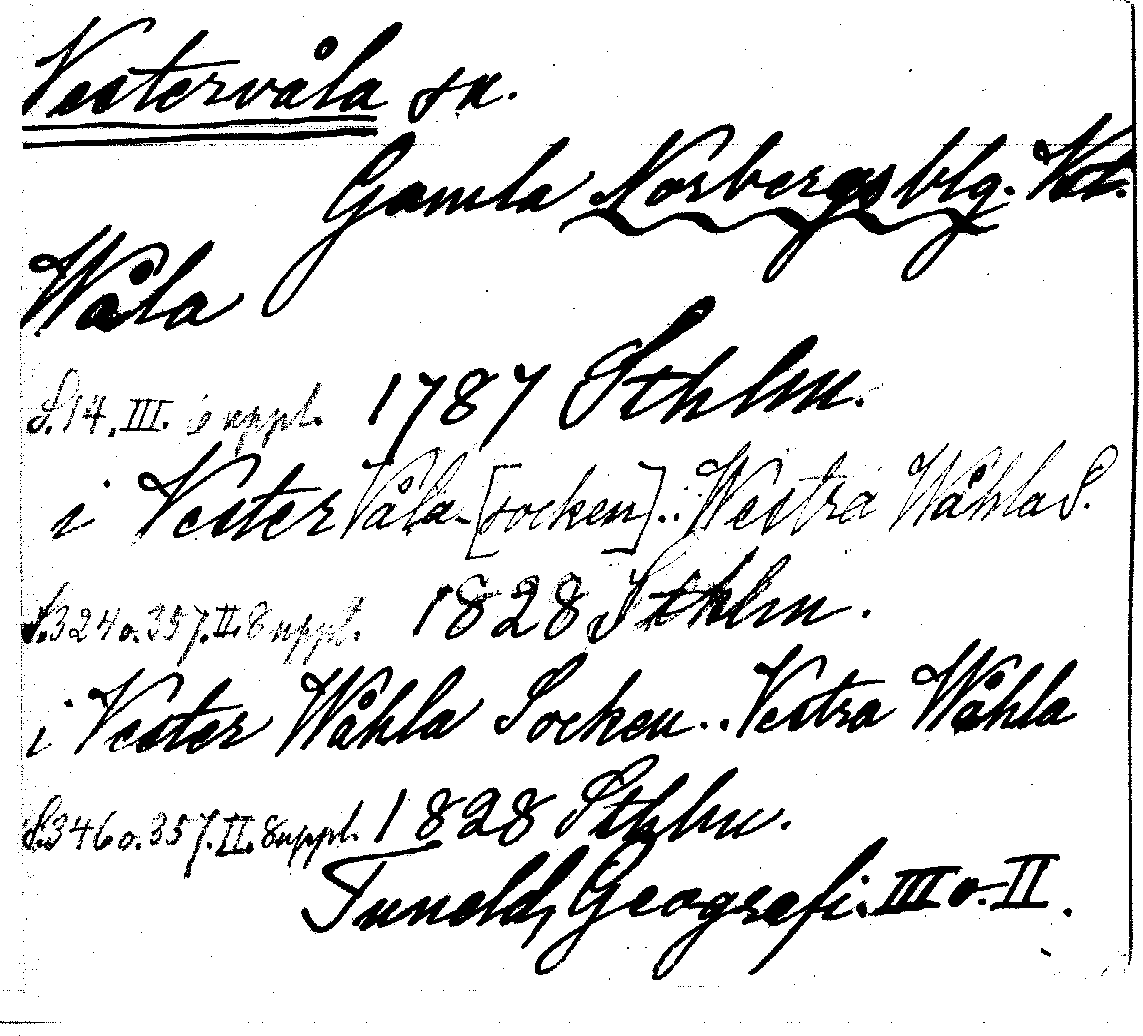 Vestervåla sn.
Gamla Norbergs blg. Vstm.
Wåla
S. 14. III. 6 uppl. 1787 Sthlm.
i Vester Våla [socken]... Westra Wåhla S.
S. 324 o. 357. II. 8 uppl. 1828 Sthlm.
i Vester Wåhla Socken.. Vestra Wåhla
S. 346 o. 357. II. 8 uppl. 1828 Sthlm.
Tuneld, Geografi. III o. II.